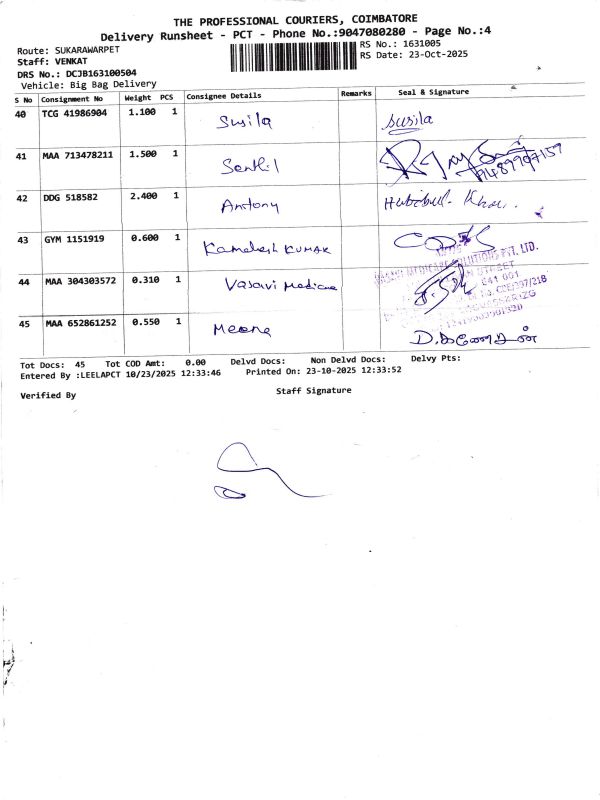 THE PROFESSIONAL COURIERS, COIMBATORE
Delivery Runsheet - PCT - Phone No.:9047080280 - Page No.:4
Route: SUKARAWARPET
RS No.: 1631005
Staff: VENKAT
RS Date: 23-Oct-2025
DRS No.: DCJB163100504
Vehicle: Big Bag Delivery
S No Consignment No Weight PCS Consignee Details Remarks Seal & Signature
40 TCG 41986904 1.100 1 Susila susila
41 MAA 713478211 1.500 1 Senthil
42 DDG 518582 2.400 1 Antony Habibul. Khan.
43 GYM 1151919 0.600 1 Kamalesh KUMAR
44 MAA 304303572 0.310 1 Vasavi Medicare
PVT. LTD.
641 001
45 MAA 652861252 0.550 1 Meena D.கணேசன்
Tot Docs: 45 Tot COD Amt: 0.00 Delvd Docs: Non Delvd Docs: Delvy Pts:
Entered By :LEELAPCT 10/23/2025 12:33:46 Printed On: 23-10-2025 12:33:52
Verified By Staff Signature